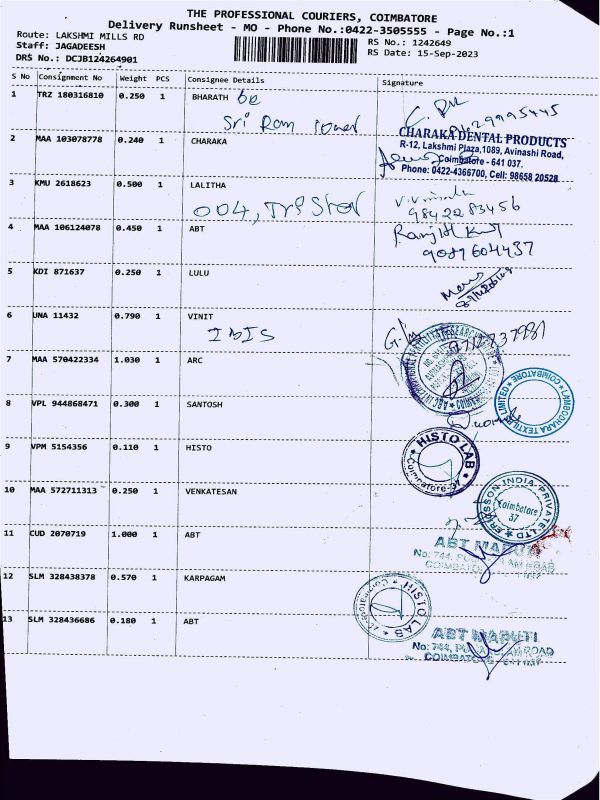 THE PROFESSIONAL COURIERS, COIMBATORE
Delivery Runsheet - MO - Phone No.:0422-3505555 - Page No.:1
Route: LAKSHMI MILLS RD
RS No.: 1242649
Staff: JAGADEESH
RS Date: 15-Sep-2023
DRS No.: DCJB124264901
S No Consignment No Weight PCS Consignee Details Signature
1 TRZ 180316810 0.250 1 BHARATH
Sri Ram tower
2 MAA 103078778 0.240 1 CHARAKA
CHARAKA DENTAL PRODUCTS
R-12, Lakshmi Plaza,1089, Avinashi Road,
Coimbatore - 641 037.
Phone: 0422-4366700, Cell: 98658 20528
3 KMU 2618623 0.500 1 LALITHA
004,
9842283456
4 MAA 106124078 0.450 1 ABT
Ranjith
9089604437
5 KDI 871637 0.250 1 LULU
6 UNA 11432 0.790 1 VINIT
IBIS
7 MAA 570422334 1.030 1 ARC
8 VPL 944868471 0.300 1 SANTOSH
LAMBODHARA TEXTILES LIMITED
COIMBATORE
9 VPM 5154356 0.110 1 HISTO
HISTO LAB
Coimbatore-37
10 MAA 572711313 0.250 1 VENKATESAN
ERICSSON INDIA PRIVATE LTD
Coimbatore
37
11 CUD 2070719 1.000 1 ABT
ABT MARUTI
No: 744,
ROAD
12 SLM 328438378 0.570 1 KARPAGAM
HISTO LAB
13 SLM 328436686 0.180 1 ABT
ABT MARUTI
No: 744,
ROAD
COIMBATORE